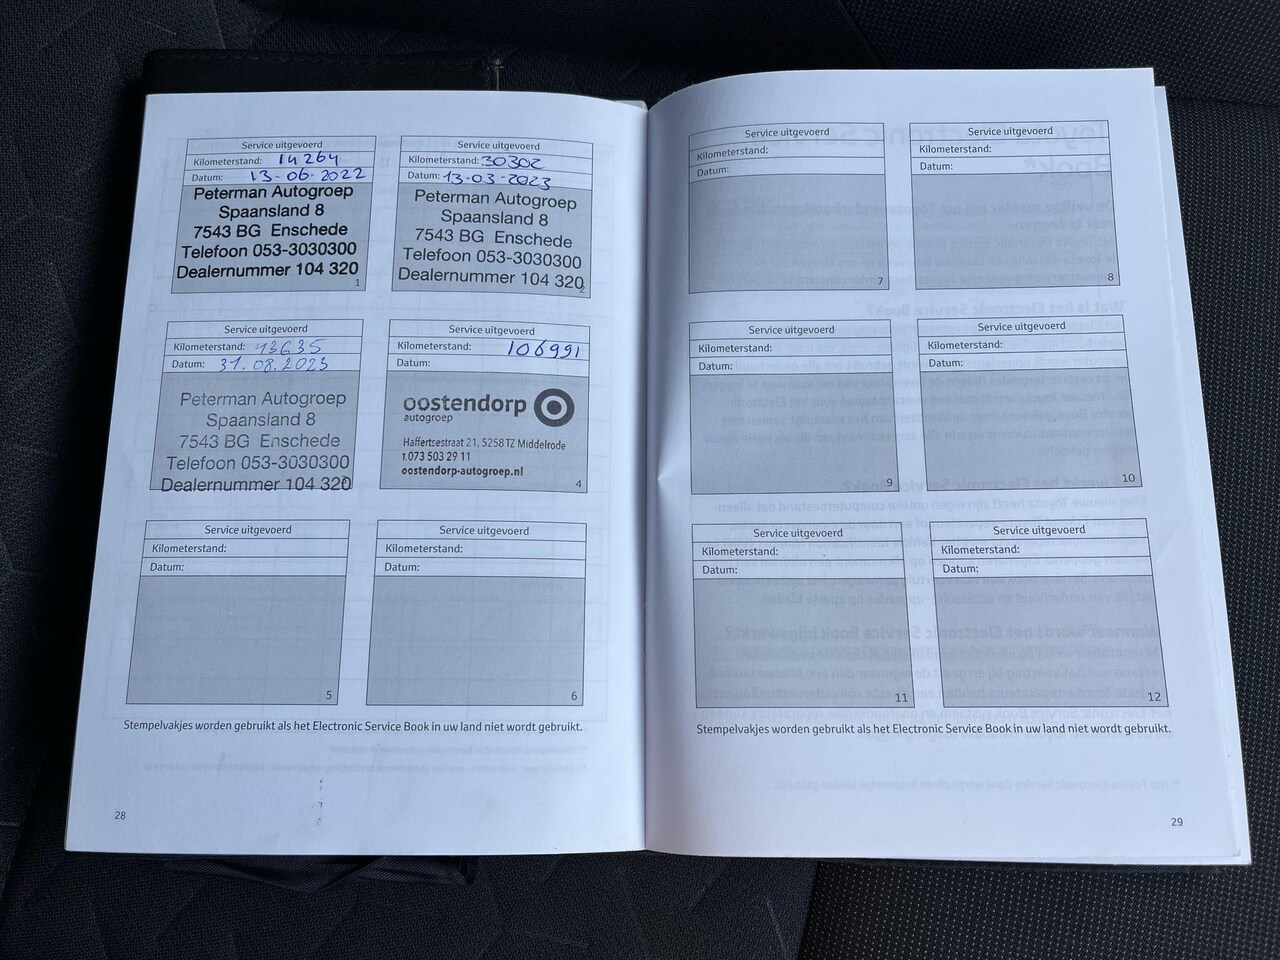 Service uitgevoerd
Kilometerstand: 14264
Datum: 13-06-2022
Peterman Autogroep
Spaansland 8
7543 BG Enschede
Telefoon 053-3030300
Dealernummer 104 320
1
Service uitgevoerd
Kilometerstand: 30302
Datum: 13-03-2023
Peterman Autogroep
Spaansland 8
7543 BG Enschede
Telefoon 053-3030300
Dealernummer 104 320
2
Service uitgevoerd
Kilometerstand: 43635
Datum: 31.08.2023
Peterman Autogroep
Spaansland 8
7543 BG Enschede
Telefoon 053-3030300
Dealernummer 104 320
Service uitgevoerd
Kilometerstand: 106991
Datum:
oostendorp
autogroep
Haffertsestraat 21, 5258 TZ Middelrode
T.073 503 29 11
oostendorp-autogroep.nl
4
Service uitgevoerd
Kilometerstand:
Datum:
5
Service uitgevoerd
Kilometerstand:
Datum:
6
Stempelvakjes worden gebruikt als het Electronic Service Book in uw land niet wordt gebruikt.
28
Service uitgevoerd
Kilometerstand:
Datum:
7
Service uitgevoerd
Kilometerstand:
Datum:
8
Service uitgevoerd
Kilometerstand:
Datum:
9
Service uitgevoerd
Kilometerstand:
Datum:
10
Service uitgevoerd
Kilometerstand:
Datum:
11
Service uitgevoerd
Kilometerstand:
Datum:
12
Stempelvakjes worden gebruikt als het Electronic Service Book in uw land niet wordt gebruikt.
29